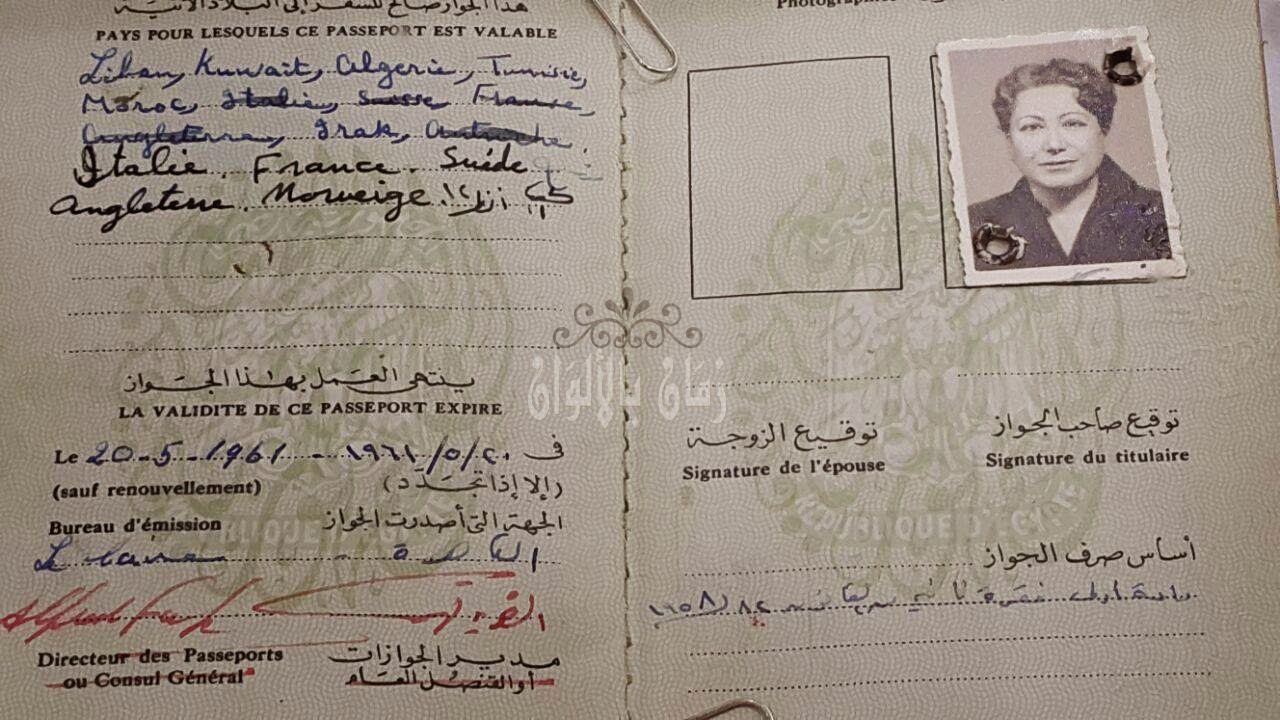 هذا الجواز صالح للسفر إلى البلاد الآتية
PAYS POUR LESQUELS CE PASSEPORT EST VALABLE
Liban, Kuwait, Algerie, Tunisie,
Moroc, Italie, Suisse France,
Angleterre, Irak, Autriche
Italie, France, Suède
Angleterre, Norweige
ينتهى العمل بهذا الجواز
LA VALIDITE DE CE PASSEPORT EXPIRE
Le 20-5-1961 - ١٩٦١/٥/٢٠ فى
(sauf renouvellement) (إلا إذا تجدد)
Bureau d'émission الجهة التى أصدرت الجواز
القاهرة
Directeur des Passeports مدير الجوازات
ou Consul Général أو القنصل العام
توقيع الزوجة
Signature de l'épouse
توقيع صاحب الجواز
Signature du titulaire
REPUBLIQUE D'EGYPTE
أساس صرف الجواز
زمان بالألوان